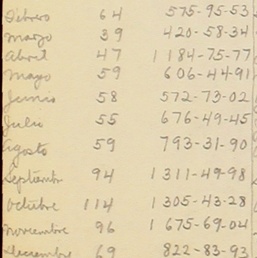 Febrero 64 575-95-53
Marzo 39 420-58-34
Abril 47 1184-75-77
Mayo 59 606-44-91
Junio 58 572-73-02
Julio 55 676-49-45
Agosto 59 793-31-90
Septiembre 94 1311-49-98
Octubre 114 1305-43-28
Noviembre 96 1675-69-04
Diciembre 69 822-83-93